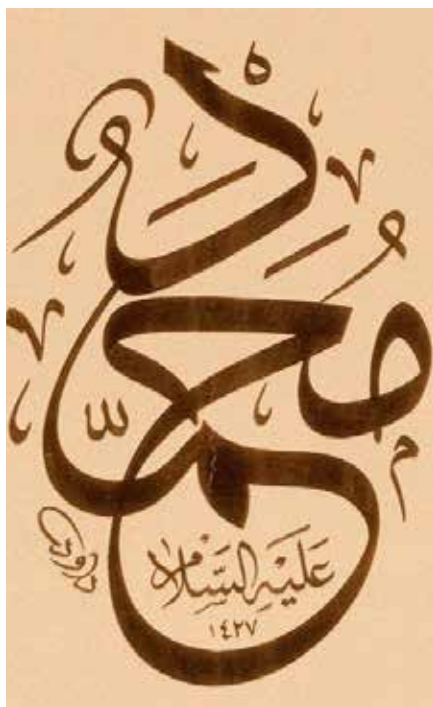 مُحَمَّد
عَلَيْهِ السَّلَام
١٤٢٧